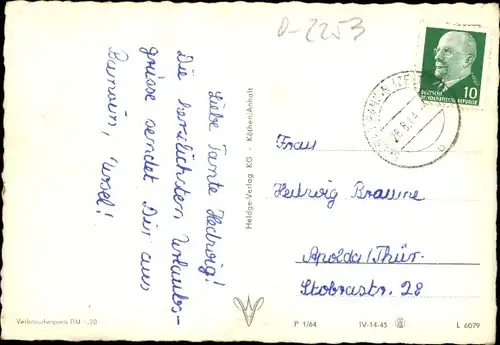 D-2253
Liebe Tante Hedwig!
Die herzlichsten Urlaubs-
grüsse sendet Dir aus
Heldge-Verlag KG - Köthen/Anhalt
DEUTSCHE
DEMOKRATISCHE REPUBLIK
10
Frau
Hedwig Braune
Apolda/Thür.
Stobrastr. 28
Verbraucherpreis DM -,20
P 1/64
IV-14-45
L 6079